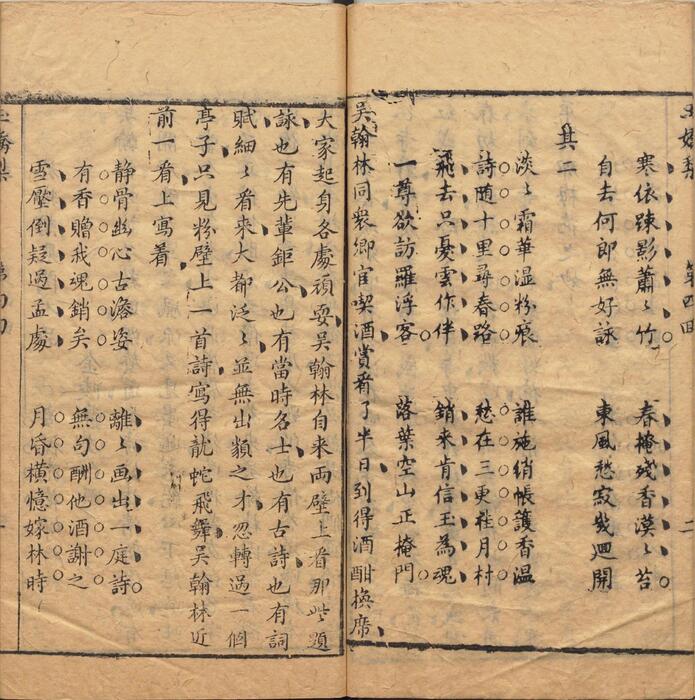 寒依踈影蕭〻竹　春掩殘香漠〻苔
自去何郎無好詠　東風愁寂幾迴開
其二
淡〻霜華湿粉痕　誰施绡帳護香温
詩随十里尋春路　愁在三更挂月村
飛去只憂雲作伴　銷来肯信玉為魂
一尊欲訪羅浮客　落葉空山正掩門
吳翰林同衆鄉宦喫酒賞看了半日到得酒酣換席
大家起身各處頑耍吳翰林自来兩壁上看那些題
詠也有先輩鉅公也有當時名士也有古詩也有詞
賦細〻看來大都泛〻並無出類之才忽轉過一個
亭子只見粉壁上一首詩寫得龍蛇飛舞吳翰林近
前一看上寫着
静骨幽心古澹姿　離〻画出一庭詩
有香贈我魂銷矣　無句酬他酒謝之
雪壓倒疑過孟處　月昏橫憶嫁林時